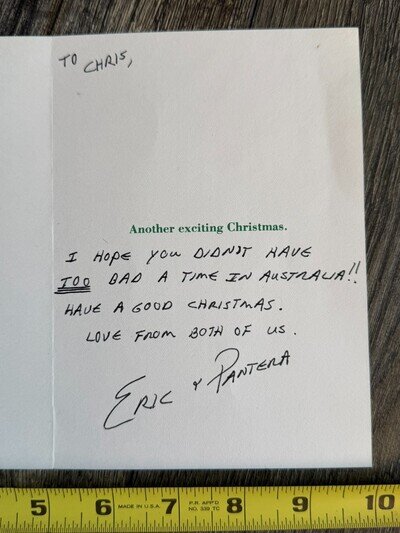 TO CHRIS,
Another exciting Christmas.
I HOPE YOU DIDN'T HAVE
TOO BAD A TIME IN AUSTRALIA!!
HAVE A GOOD CHRISTMAS.
LOVE FROM BOTH OF US.
ERIC & PANTERA
5 6 7 8 9 10
MADE IN U.S.A. P.R. APP'D
NO. 339 TC